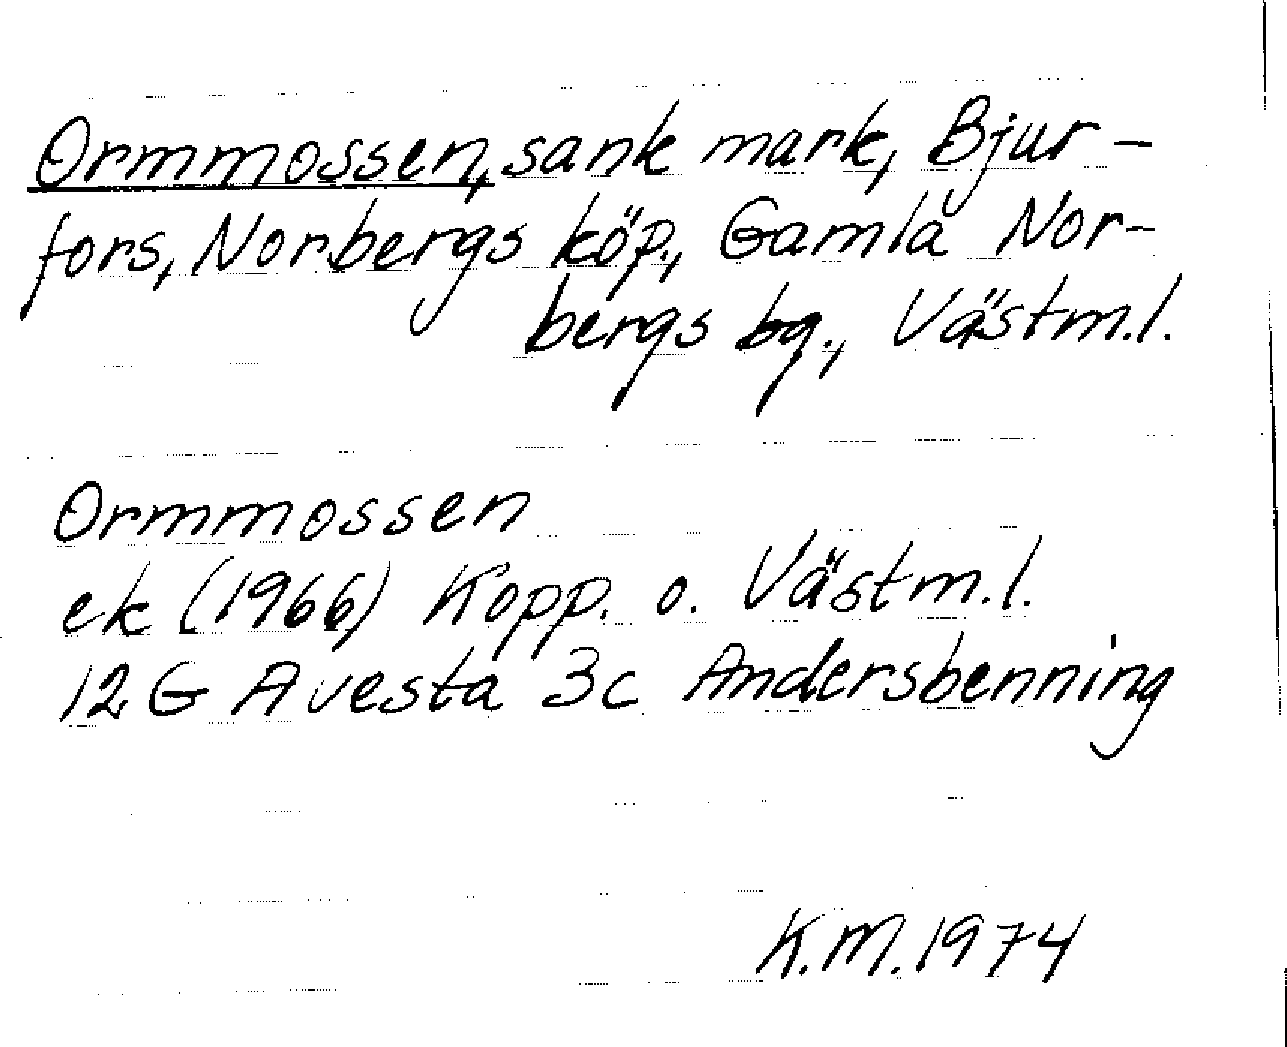 Ormmossen, sank mark, Bjur-
fors, Norbergs köp., Gamla Nor-
bergs bg., Västm.l.
Ormmossen
ek (1966) Kopp. o. Västm.l.
12 G Avesta 3c Andersbenning
K.M. 1974